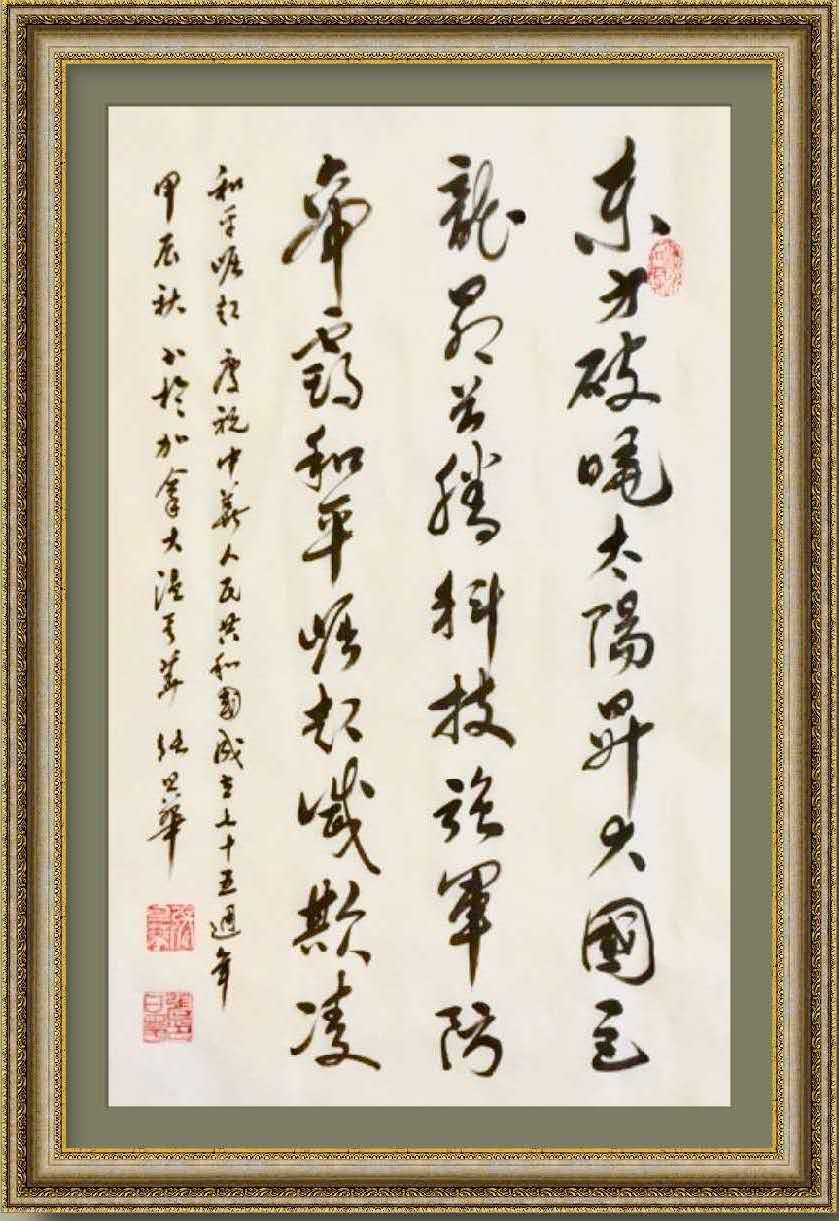 东方破曉太陽昇大國巨
龍昂首騰科技強軍防
帝霸和平崛起滅欺凌
和平崛起 慶祝中華人民共和國成立七十五週年
甲辰秋 书於加拿大温哥華 張華